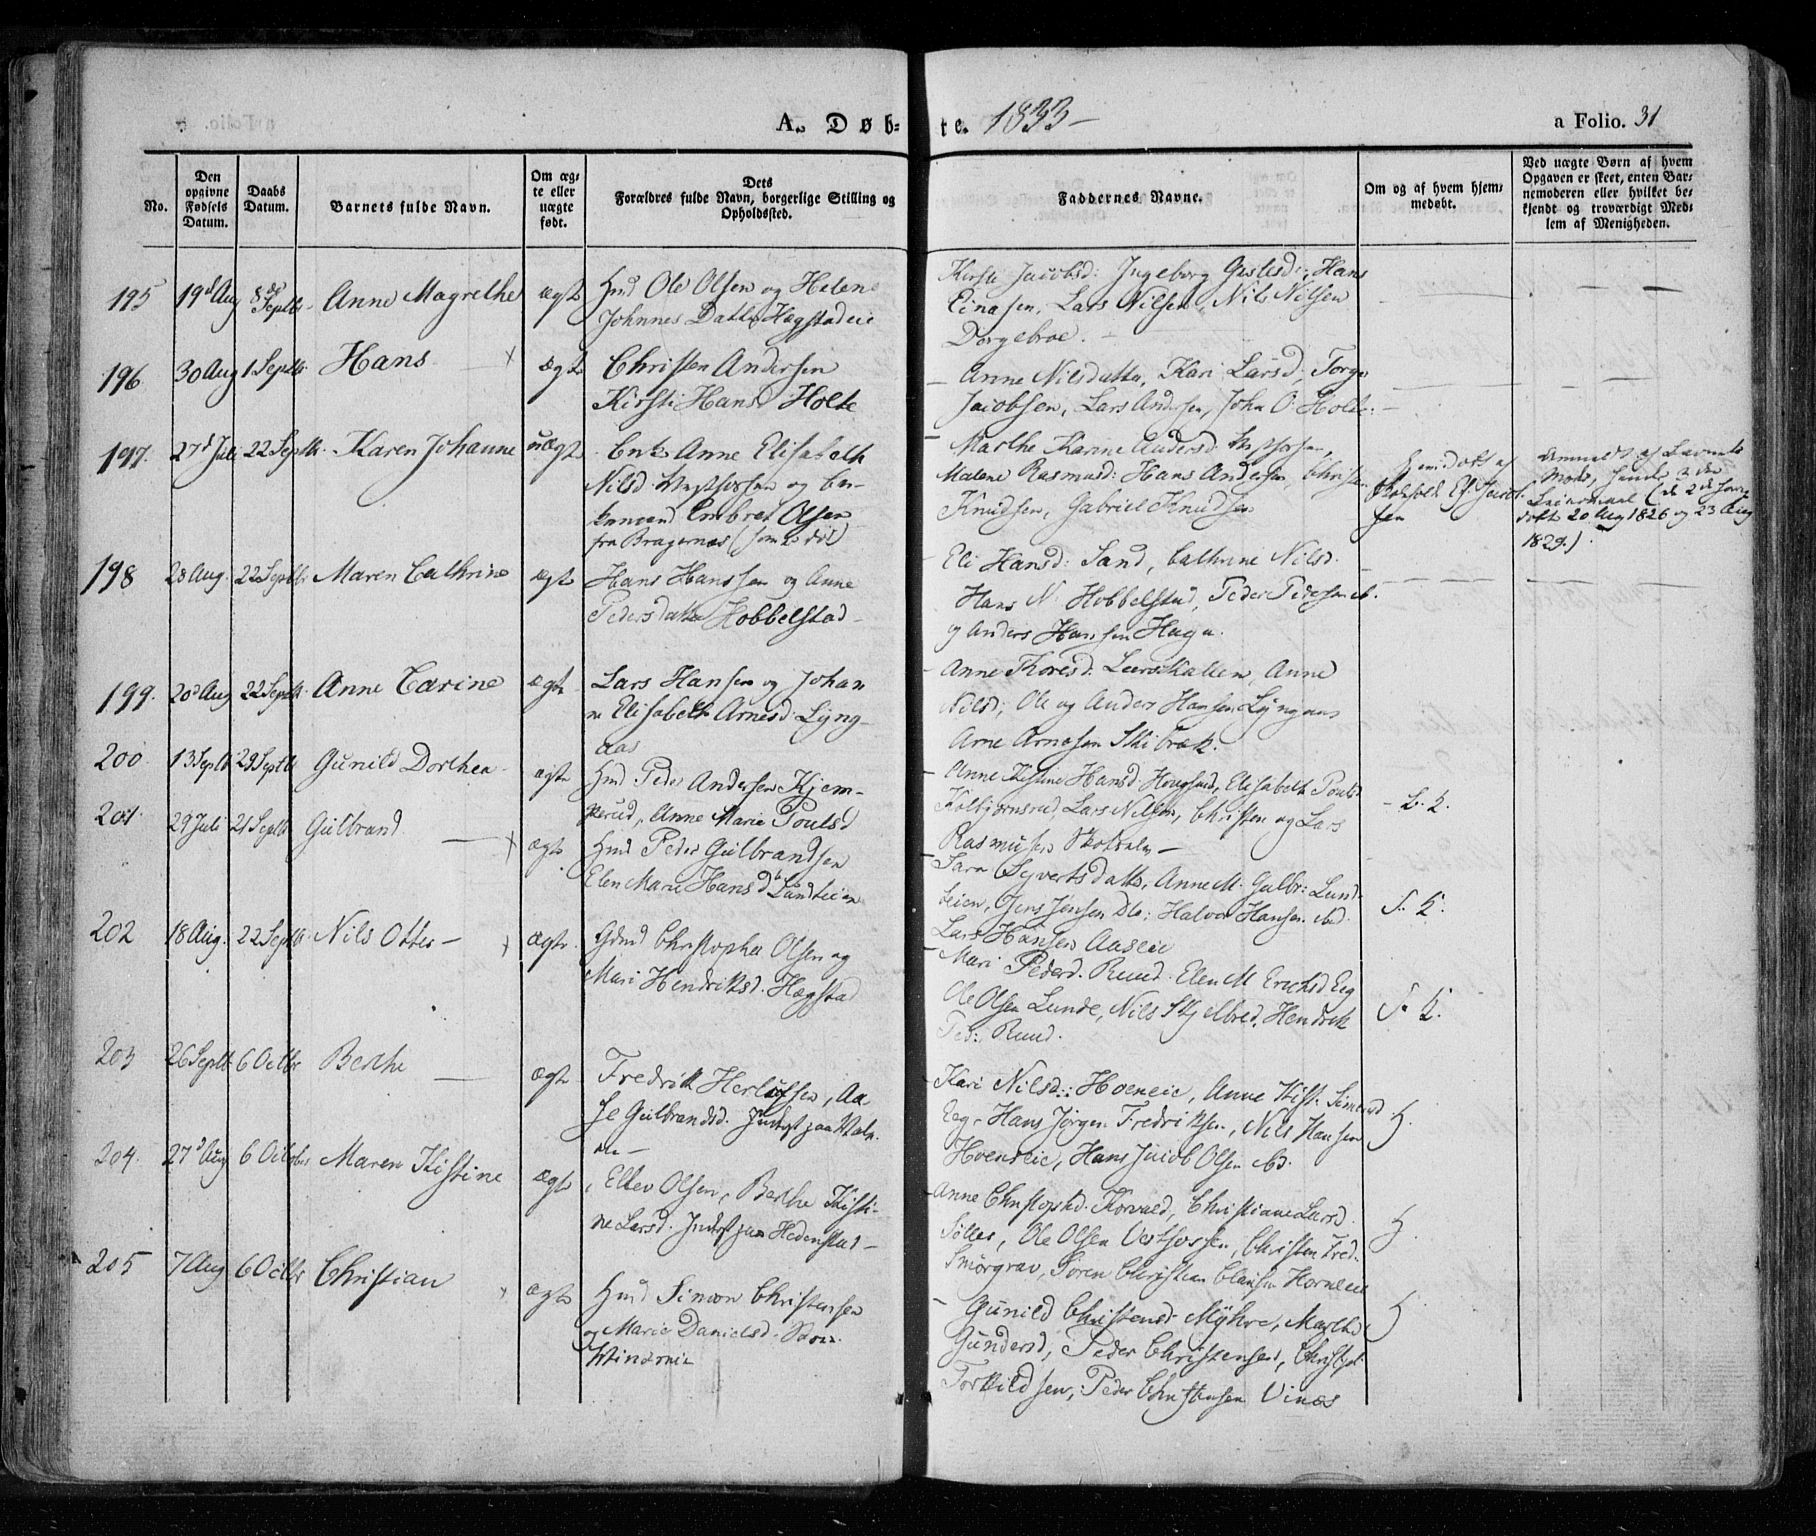 A. Døb- te. 1833 –
a Folio. 31
No.
Den opgivne Fødsels Datum.
Daabs Datum.
Barnets fulde Navn.
Om ægte eller uægte født.
Dets Forældres fulde Navn, borgerlige Stilling og Opholdssted.
Faddernes Navne.
Om og af hvem hjemmedøbt.
Ved uægte Børn af hvem Opgaven er skeet, enten Barnemoderen eller hvilket bekjendt og troværdigt Medlem af Menigheden.
195 19d Aug 8de Septbr Anne Magrethe ægte Hmd Ole Olsen og Helene
Johnnes Datter Hægstadeie
Kirsti Jacobsd: Ingeborg Gulisd:, Hans
Einarsen, Lars Nilsen, Nils Nilsen
Dorgebroe. –
196 30 Aug 1 Septbr Hans ægte Christen Andersen
Kirsti Hansd Holte
– Anne Nilsdatter, Kari Larsd, Torger
Jacobsen, Lars Andersen, John O. Holte
197. 27d Juli 22 Septbr. Karen Johanne uægte Enke Anne Elisabeth
Nilsd Vestfossen og
Embret Olsen
fra Bragernæs (
– Marthe Karine Andersd Vestfossen,
Malene Rasmusd: Hans Andersen, Christen
Knudsen, Gabriel Knudsen
Hjemdøbt af
Ef. Jacobsen
Anmeldt af Barnets
Moder, hendes 3die
Leiermaal (de 2de
døbt 20 Aug 1826 og 23 Aug
1829.)
198 28 Aug. 22 Septbr Maren Cathrine ægte Hans Hanssen og Anne
Pedersdatter Hobbelstad
Eli Hansd: Sand, Cathrine Nilsd.
Hans N. Hobbelstad, Peder Pedersen ib.
og Anders Hansen Haga.
199. 20d Aug 22 Septbr. Anne Carine ægte Lars Hansen og Johan
ne Elisabeth Arnesd. Lyng-
aas
– Anne Thoresd. Leerskallen, Anne
Nilsd; Ole og Anders Hansen Lyngaas
Arne Arnesen Skibræk.
200 13 Septbr 29 Septbr Gunild Dorthea ægte Hmd Peder Andersen Kjem-
perud, Anne Marie Poulsd
– Anne Kistine Hansd. Hougsrud, Elisabeth Poulsd
Kolbjørnsrud, Lars Nilsen, Christen og Lars
Rasmusen –
– L. K.
201. 29 Juli 21 Septbr Gulbrand ægte Hmd Peder Gulbrandsen
Elen Marie Hansd Lundteien
– Sara Syvertsdatter, Anne M. Gulbr: Lund-
teien, Jens Jensen Do; Halvor Hansen ibd.
Lars Hansen Aaseie
S. K.
202 18 Aug. 22 Septbr Nils Otter – ægte. Gdmd Christopher Olsen og
Mari Hendriksd. Hægstad
– Mari Pedersd. Ruud. Elen M. Erichsd Eeg
Ole Olsen Lunde, Nils Skjelbred, Hendrik
Ped: Ruud.
S. K.
203 26 Septbr 6 Octbr Berthe ægte Fredrik Herlufsen, Aa
se Gulbrandsd. Inderst paa
Kari Nilsd.: Hoeneie, Anne Kist. Simensd
Eeg, Hans Jørgen Fredriksen, Nils Hansen
Hoeneeie, Hans Jacob Olsen ibd.
H.
204. 27d Aug 6 Octbr Maren Kistine ægte Ellev Olsen, Berthe Kisti-
ne Larsd. Inderst paa Hedenstad –
– Anne Christophd. Korvald, Christiane Larsd.
Søller, Ole Olsen Vestfossen, Christen Fred.
Smørgrav, Søren Christian Clausen Horneeie
H.
205 7 Aug 6 Octbr Christian ægte Hmd Simon Christensen
og Marie Danielsd.
– Gunild Christensd. Myhre, Marthe
Gundersd, Peder Christensen, Christoph
Torkildsen, Peder Christensen Vinæs
H